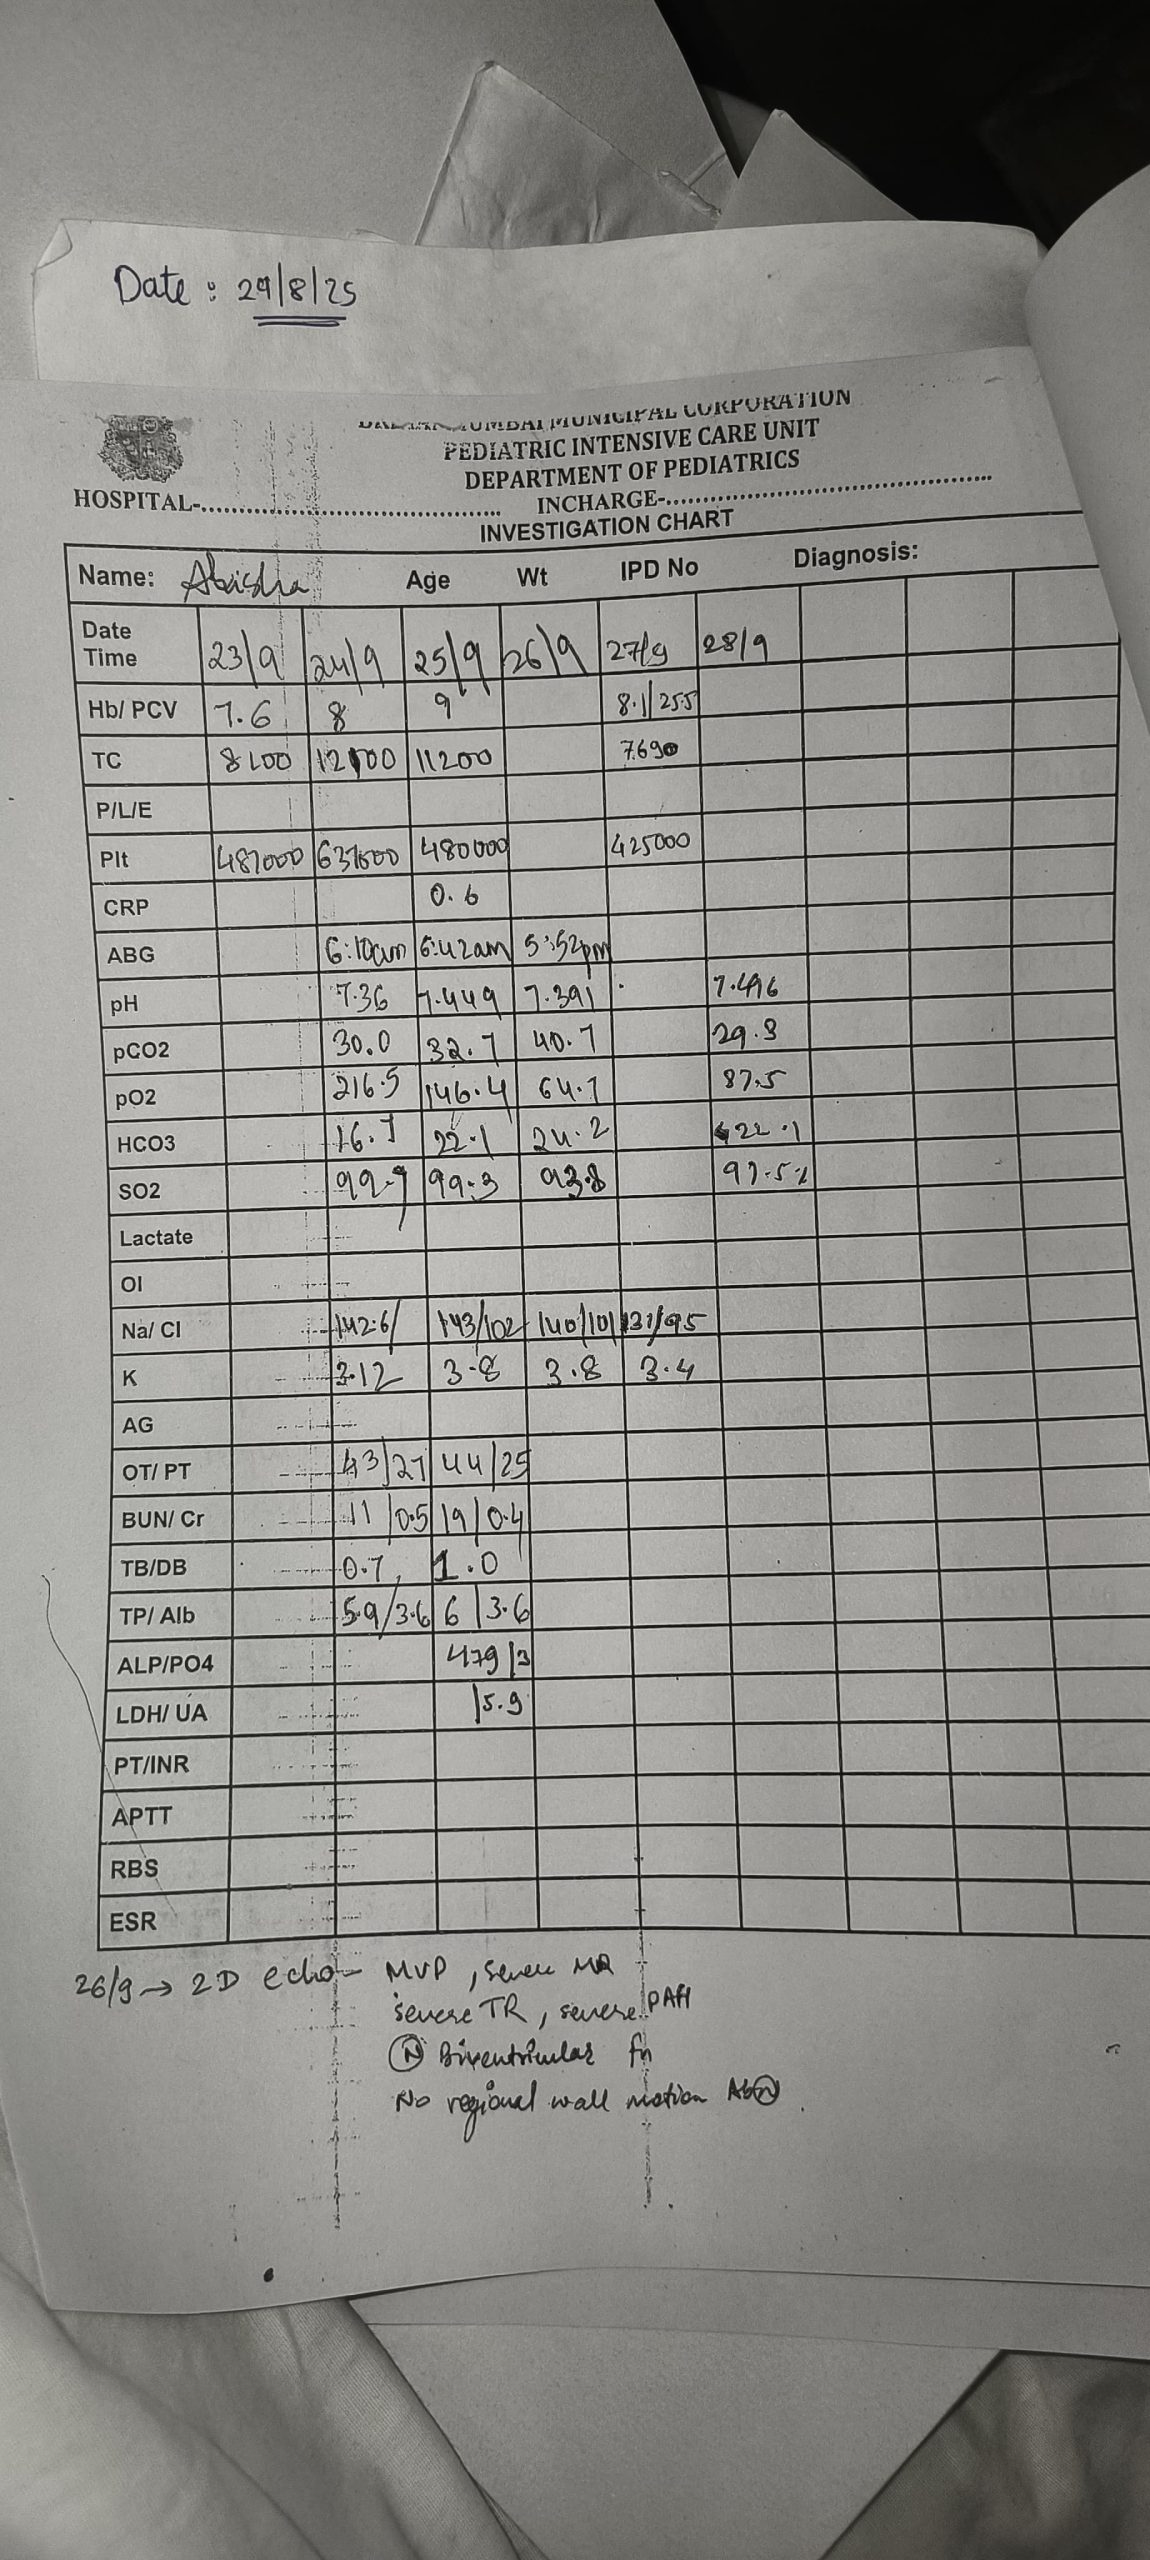 Date : 29/8/25
MUNICIPAL CORPORATION
PEDIATRIC INTENSIVE CARE UNIT
DEPARTMENT OF PEDIATRICS
HOSPITAL-................ INCHARGE-................
INVESTIGATION CHART
Name: Abisha Age Wt IPD No Diagnosis:
Date Time 23/9 24/9 25/9 26/9 27/9 28/9
Hb/ PCV 7.6 8 9 8.1/25.5
TC 8100 11200 7690
P/L/E
Plt 487000 480000 425000
CRP 0.6
ABG 6:10am 6:42am 5:52pm
pH 7.36 7.449 7.391 7.496
pCO2 30.0 32.7 40.7 29.3
pO2 216.5 146.4 64.7 87.5
HCO3 16.7 22.1 24.2 22.1
SO2 99.9 99.3 93.8 97.5%
Lactate
OI
Na/ Cl 142.6/ 143/102 140/101 131/95
K 3.12 3.8 3.8 3.4
AG
OT/ PT 43/27 44/25
BUN/ Cr 11/0.5 19/0.4
TB/DB 0.7 1.0
TP/ Alb 5.9/3.6 6/3.6
ALP/PO4 479/3
LDH/ UA /5.9
PT/INR
APTT
RBS
ESR
26/9 → 2D echo - MVP, severe MR
severe TR, severe PAH
Ⓝ Biventricular fn
No regional wall motion AbⓃ.